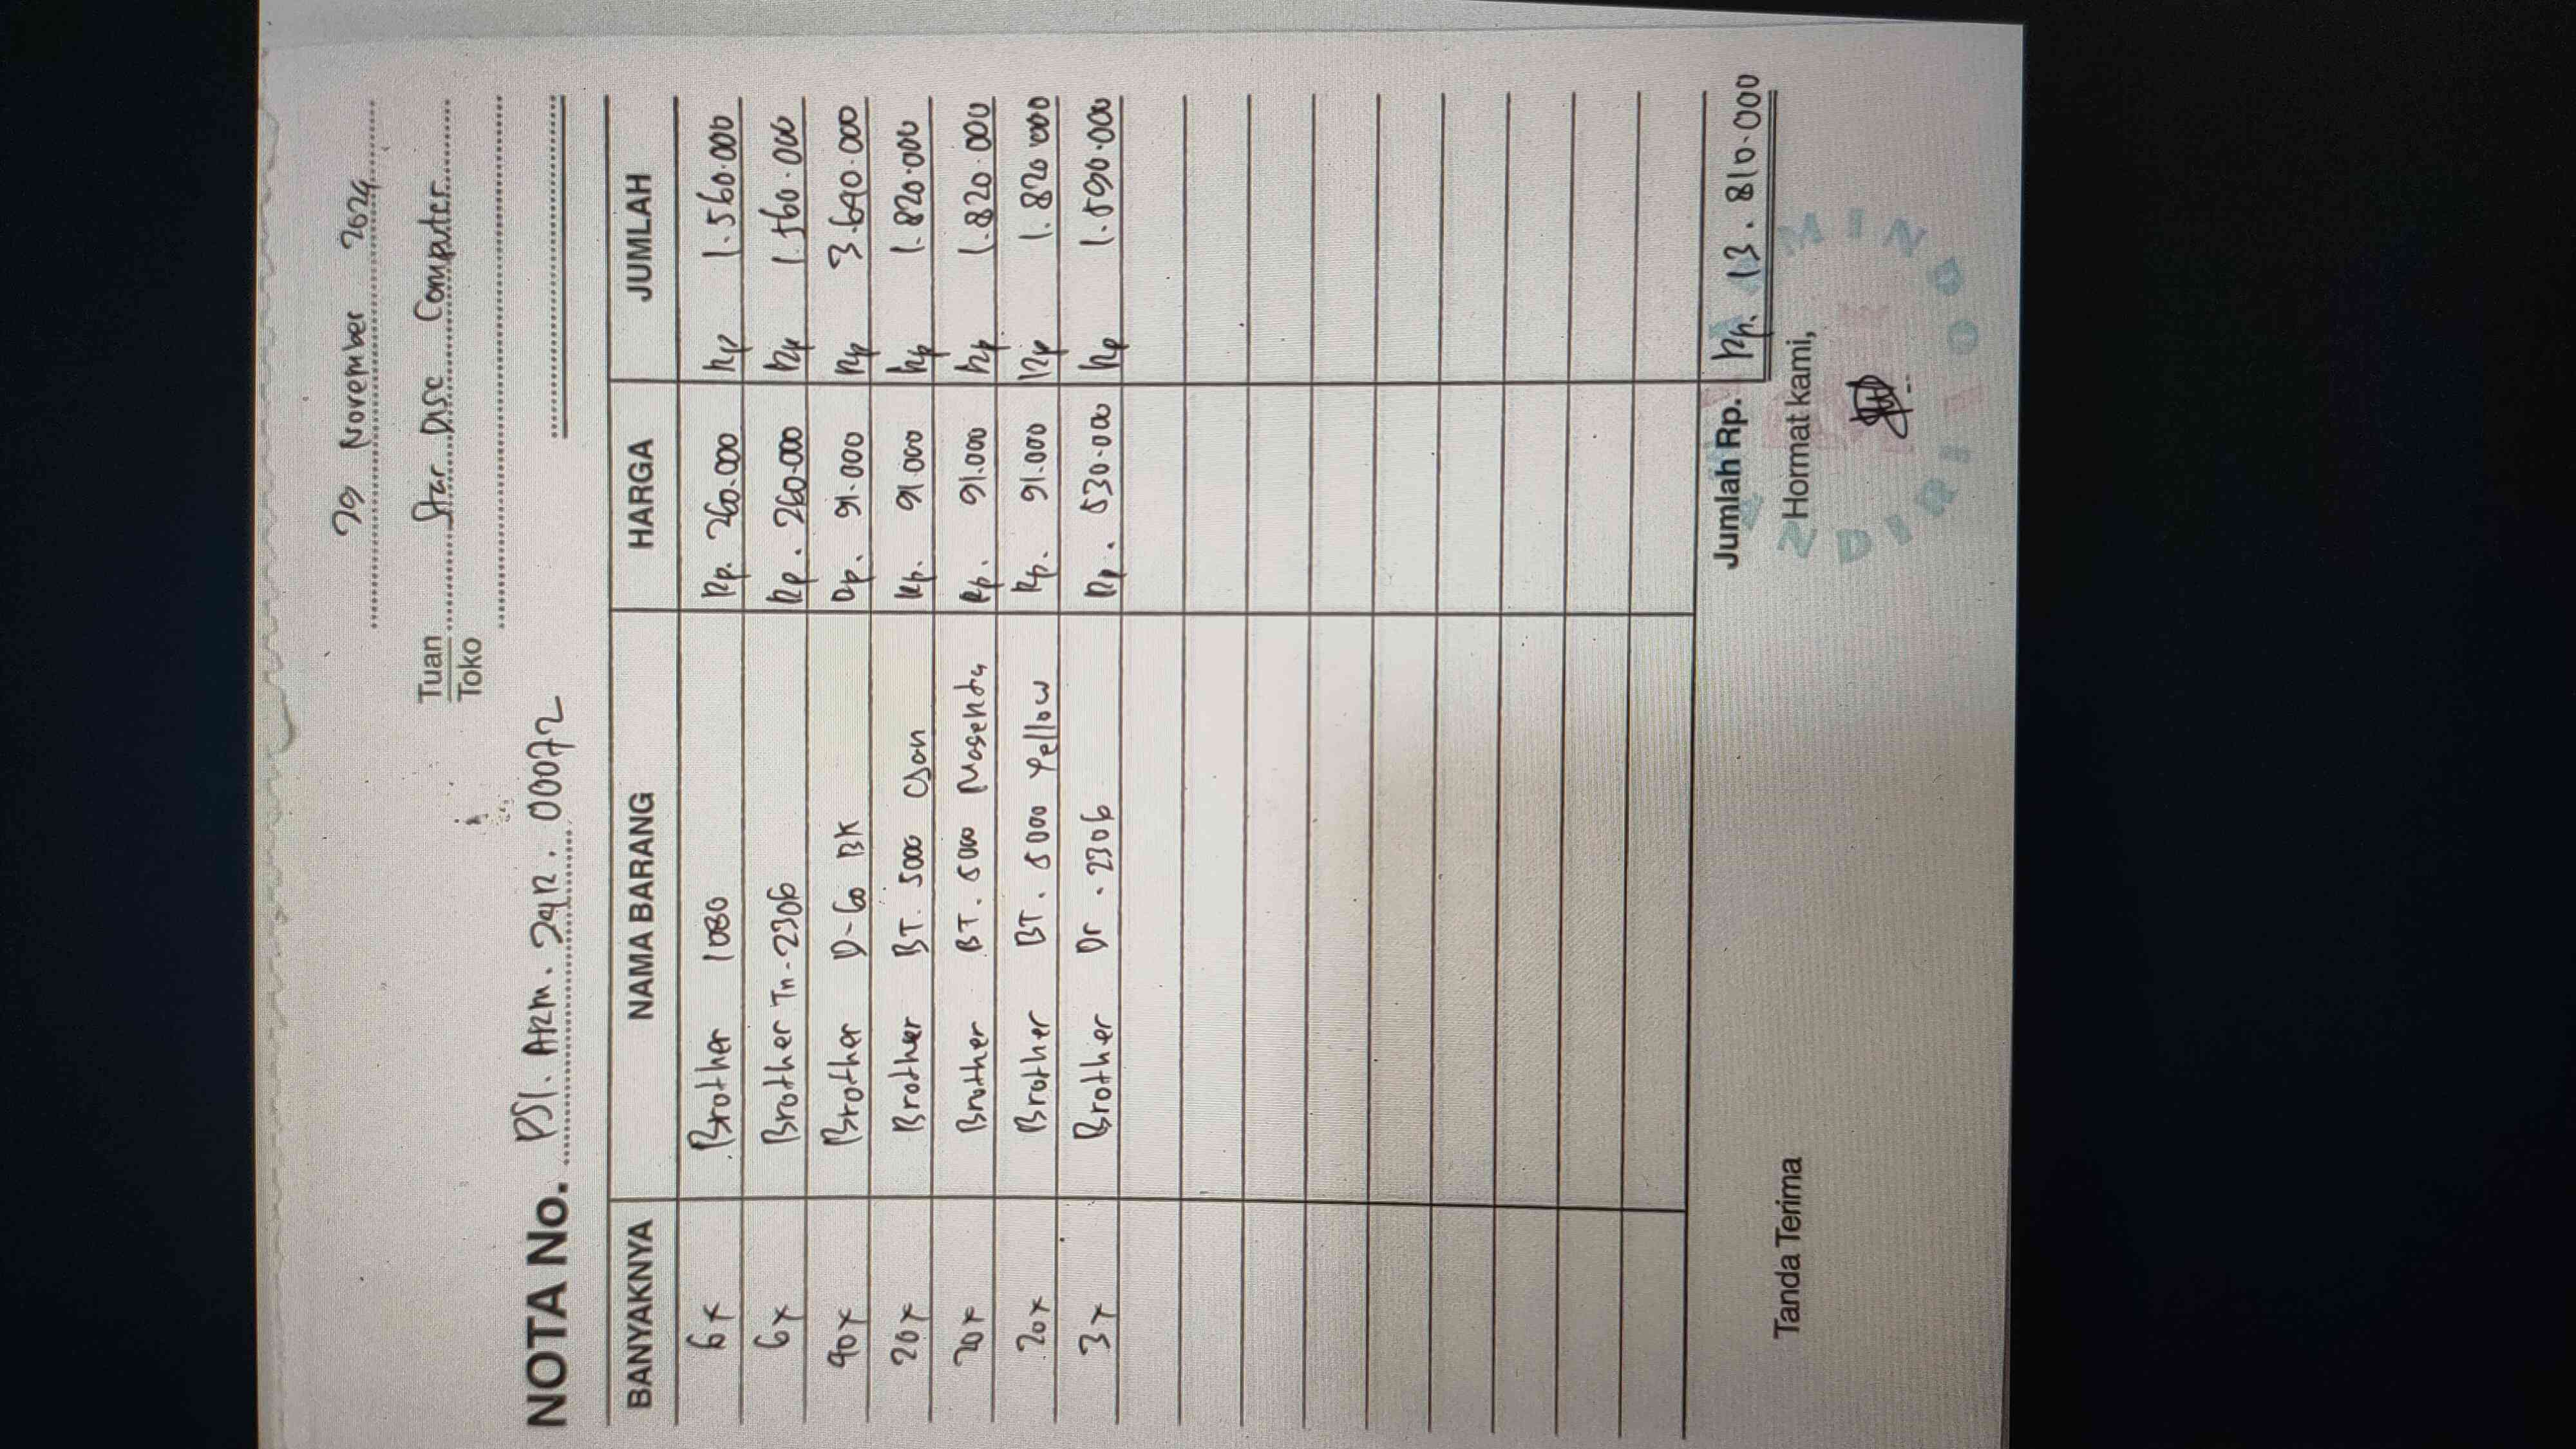 29 November 2024
Tuan Star Disc Computer
Toko
NOTA No. PSI. ARM. 2412. 00072
BANYAKNYA NAMA BARANG HARGA JUMLAH
6x Brother 1080 Rp. 260.000 Rp 1.560.000
6x Brother Tn-2306 Rp. 260.000 Rp 1.560.000
40x Brother D-60 BK Rp. 91.000 Rp 3.640.000
20x Brother BT. 5000 Cyan Rp. 91.000 Rp 1.820.000
20x Brother BT. 5000 Magenta Rp. 91.000 Rp 1.820.000
20x Brother BT. 5000 Yellow Rp. 91.000 Rp 1.820.000
3x Brother Dr. 2306 Rp. 530.000 Rp 1.590.000
Jumlah Rp. Rp. 13.810.000
Tanda Terima Hormat kami,